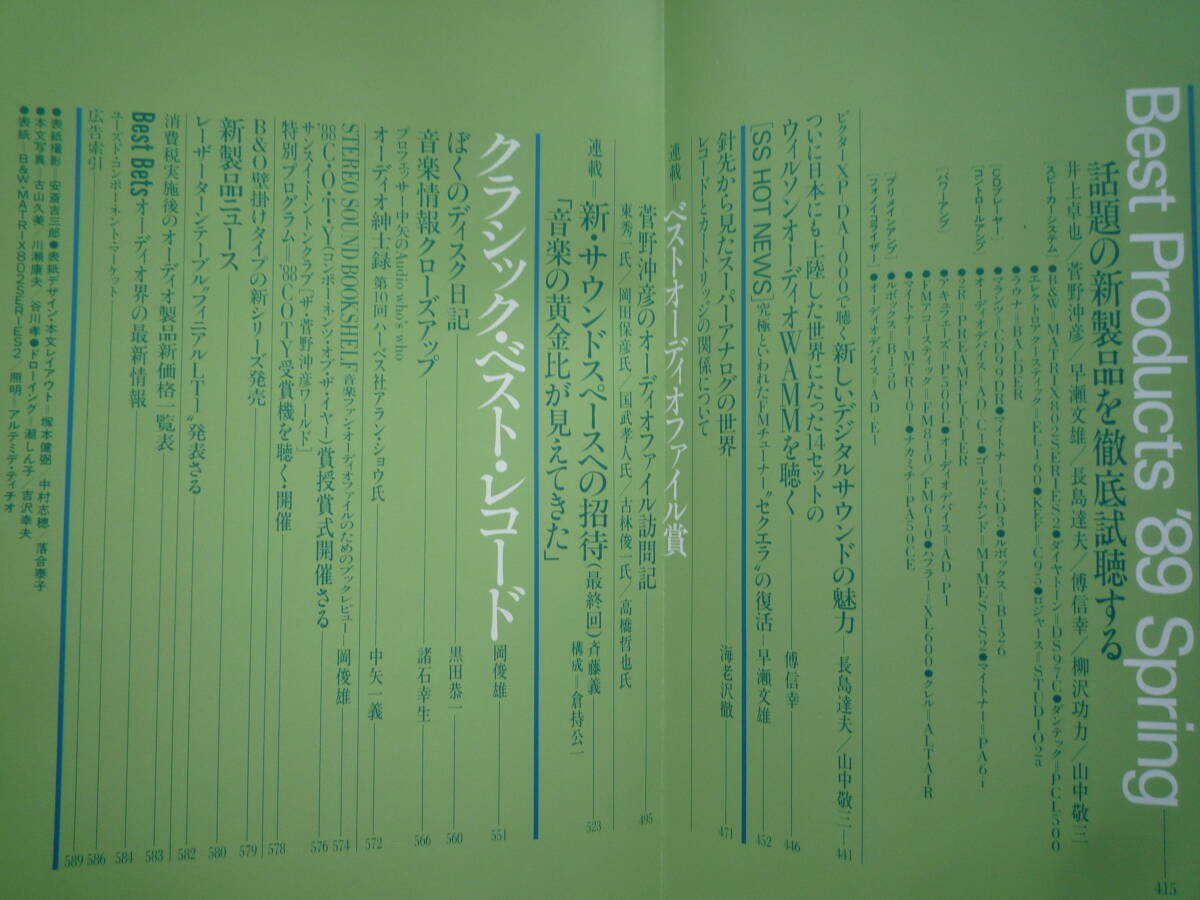 Best Products '89 Spring 415
話題の新製品を徹底試聴する
井上卓也／菅野沖彦／早瀬文雄／長島達夫／傅信幸／柳沢功力／山中敬三
[スピーカーシステム]
●B&W＝MATRIX802SERIES2●ダイヤトーン＝DS97C●ダンテック＝PCL500
エレクトロアクースティック＝EL160●KEF＝C95●ロジャース＝STUDIO2a
ラウナ＝BALDER
[CDプレーヤー]
マランツ＝CD99DR●マイトナー＝CD3●ルボックス＝B126
[コントロールアンプ]
●オーディオデバイス＝AD-C1●ゴールドムンド＝MIMESIS2●マイトナー＝PA6i
2R＝PREAMPLIFIER
[パワーアンプ]
アキュフェーズ＝P500L●オーディオデバイス＝AD-P1
FMアコースティック＝FM810／FM610●ハフラー＝XL600●クレル＝ALTAIR
マイトナー＝MTR101●ナカミチ＝PA50CE
[プリメインアンプ]
●ルボックス＝B150
[フォノイコライザー]
●オーディオデバイス＝AD-E1
ビクターXP-DA1000で聴く新しいデジタルサウンドの魅力 長島達夫／山中敬三 441
ついに日本にも上陸した世界にたった14セットの
ウィルソンオーディオWAMMを聴く 傅信幸 446
[SS HOT NEWS]究極といわれたFMチューナー“セクエラ”の復活 早瀬文雄 452
針先から見たスーパーアナログの世界 海老沢徹 471
レコードとカートリッジの関係について
連載＝ベストオーディオファイル賞
菅野沖彦のオーディオファイル訪問記 495
東秀一氏／岡田保彦氏／国武孝人氏／古林俊一氏／高橋哲也氏
連載＝新・サウンドスペースへの招待(最終回) 斉藤義 523
「音楽の黄金比が見えてきた」 構成＝倉持公一
クラシック・ベスト・レコード 岡俊雄 551
ぼくのディスク日記 黒田恭一 560
音楽情報クローズアップ 諸石幸生 566
プロフェッサー中矢のAudio who's who
オーディオ紳士録 第10回 ハーベス社アラン・ショウ氏 中矢一義 572
STEREO SOUND BOOKSHELF 音楽ファン・オーディオファイルのためのブックレビュー 岡俊雄 574
'88C・O・T・Y(コンポーネンツ・オブ・ザ・イヤー)賞授賞式開催さる 576
サンスイ・トントンクラブ［ザ・菅野沖彦ワールド］
特別プログラム＝'88COTY受賞機を聴く・開催 578
B&O壁掛けタイプの新シリーズ発売 579
新製品ニュース 580
レーザーターンテーブル“フィニアルLT1”発表さる 582
消費税実施後のオーディオ製品新価格一覧表 583
Best Betsオーディオ界の最新情報 584
ユーズド・コンポーネント・マーケット 586
広告索引 589
●表紙撮影＝安斎吉三郎●表紙デザイン・本文レイアウト＝塚本健弼 中村志穂／落合泰子
●本文写真＝古山久美 川瀬康夫 谷川孝●ドローイング＝瀬しん子／吉沢幸夫
●表紙＝B&W・MATRIX802SERIES2 照明＝アルテミデ・ティチオ